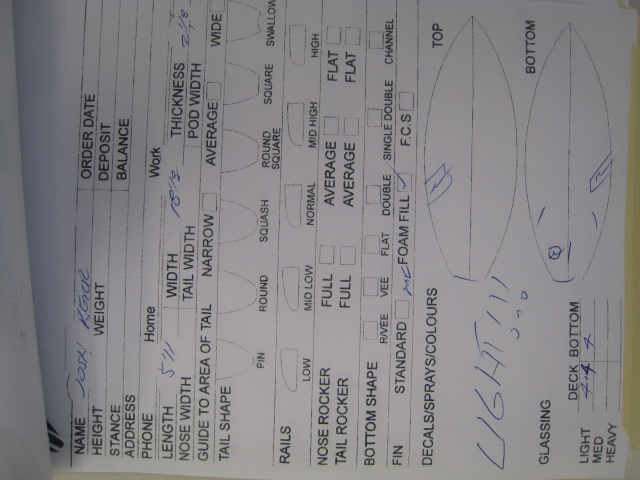 NAME JOSH KERR ORDER DATE
HEIGHT WEIGHT DEPOSIT
STANCE BALANCE
ADDRESS
PHONE Home Work
LENGTH 5'11 WIDTH 18 1/2 THICKNESS 2 1/8
NOSE WIDTH TAIL WIDTH POD WIDTH
GUIDE TO AREA OF TAIL NARROW AVERAGE WIDE
TAIL SHAPE
PIN ROUND SQUASH ROUND SQUARE SQUARE SWALLOW
RAILS
LOW MID LOW NORMAL MID HIGH HIGH
NOSE ROCKER FULL AVERAGE FLAT
TAIL ROCKER FULL AVERAGE FLAT
BOTTOM SHAPE R/VEE VEE FLAT DOUBLE SINGLE DOUBLE CHANNEL
FIN STANDARD FOAM FILL F.C.S
DECALS/SPRAYS/COLOURS TOP
LIGHT!!!
BOTTOM
GLASSING DECK BOTTOM
LIGHT 4 4 4
MED
HEAVY